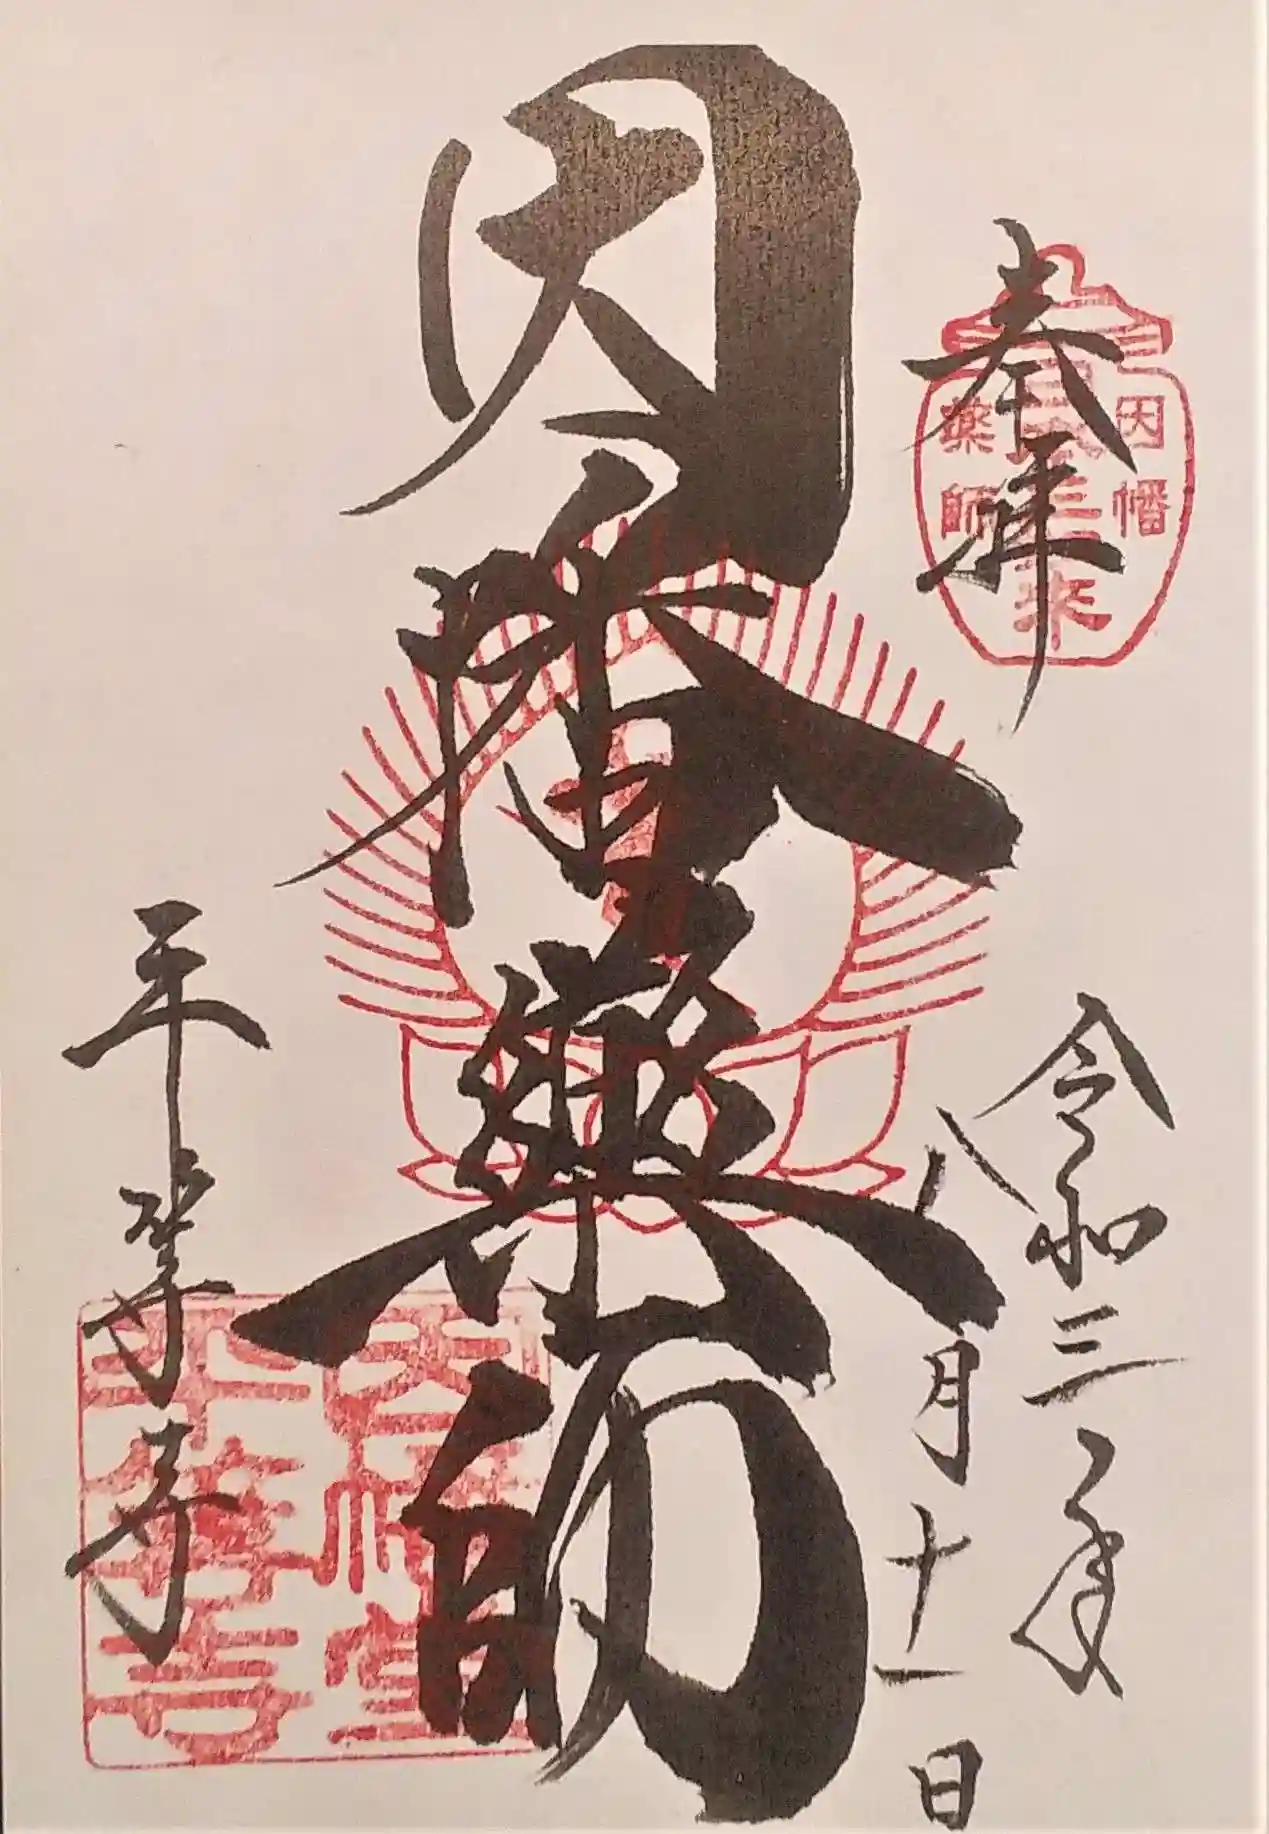 奉拝
因幡
薬師
令和三年
八月十一日
因幡薬師
平等寺
平等寺